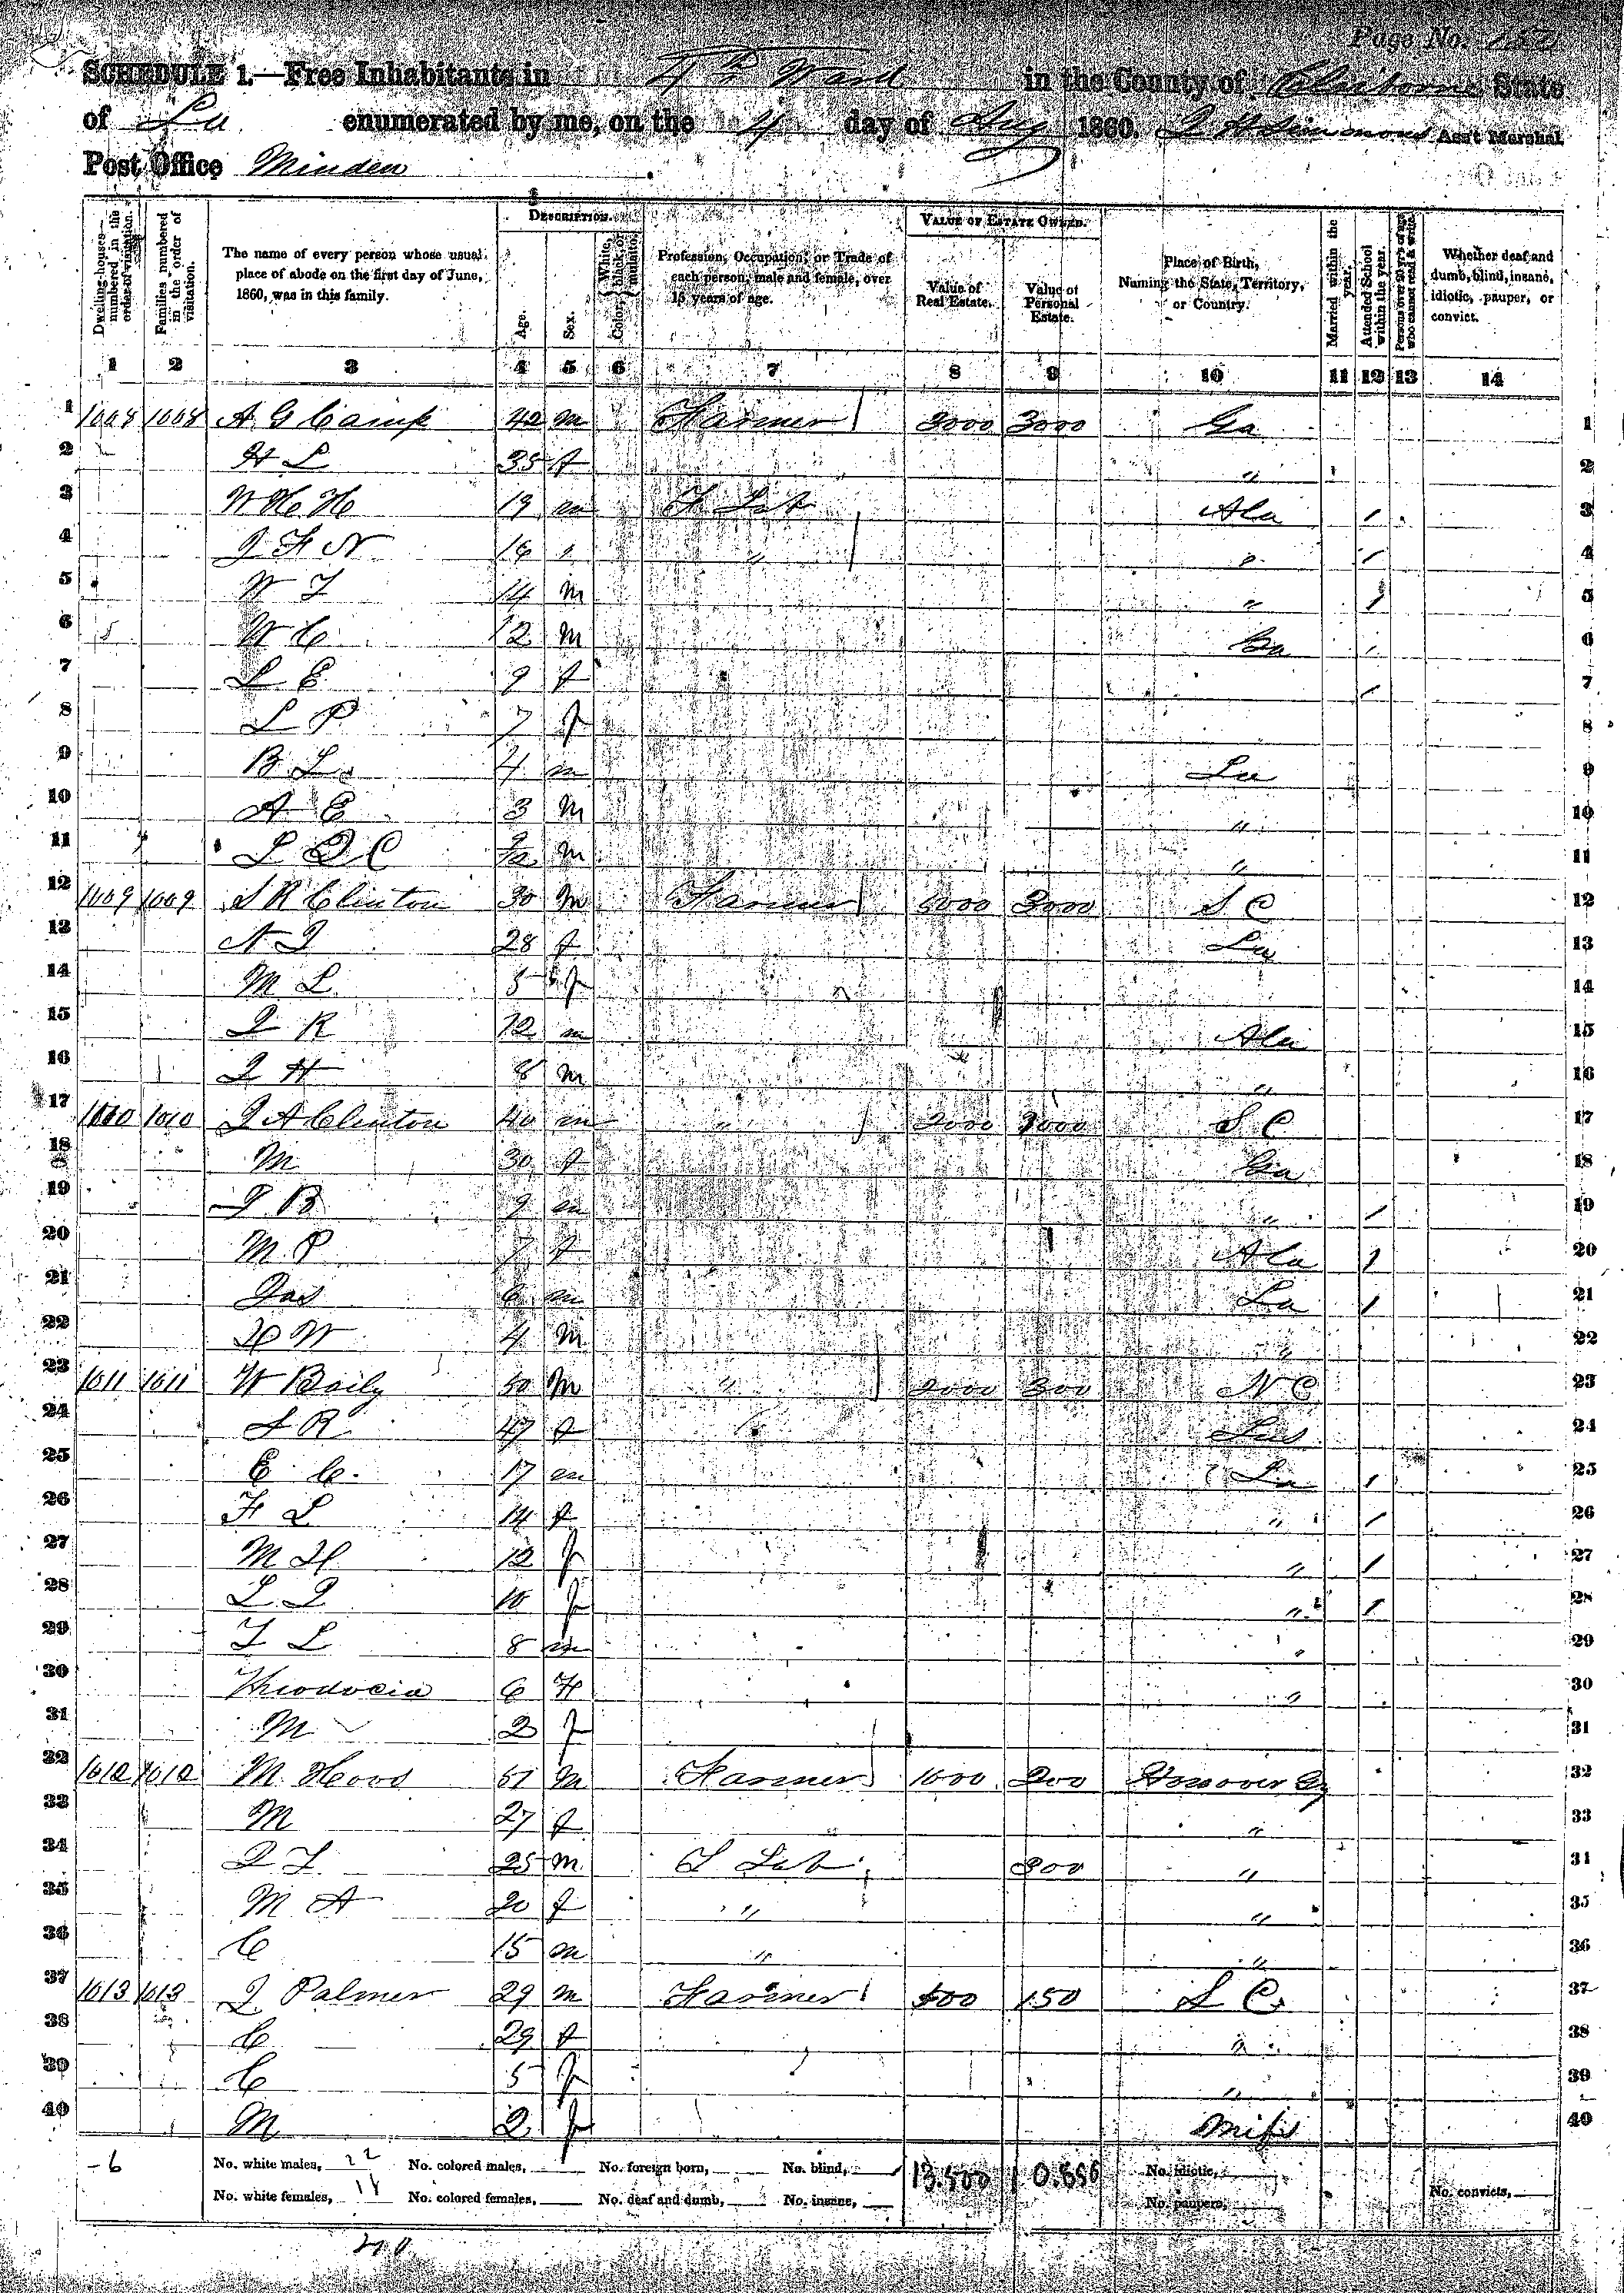 Page No. 150
SCHEDULE 1.—Free Inhabitants in 4th Ward in the County of Claiborne State
of La enumerated by me, on the 4 day of Aug 1860. J H Simmons Ass't Marshal.
Post Office Minden
DESCRIPTION. VALUE OF ESTATE OWNED.
Dwelling-houses—numbered in the order of visitation. Families numbered in the order of visitation. The name of every person whose usual place of abode on the first day of June, 1860, was in this family. Age. Sex. Color, White, black, or mulatto. Profession, Occupation, or Trade of each person, male and female, over 15 years of age. Value of Real Estate. Value of Personal Estate. Place of Birth, Naming the State, Territory, or Country. Married within the year. Attended School within the year. Persons over 20 y'rs of age who cannot read & write. Whether deaf and dumb, blind, insane, idiotic, pauper, or convict.
1 2 3 4 5 6 7 8 9 10 11 12 13 14
1 1008 1008 A G Camp 42 m Farmer 3000 3000 Ga 1
2 H L 35 f " 2
3 W H H 19 m F Lab Ala / 3
4 J F N 16 " " " / 4
5 W T 14 m " / 5
6 W C 12 m Ga / 6
7 L E 9 f / 7
8 L P 7 f 8
9 B L 4 m La 9
10 A E 3 m " 10
11 L D C m " 11
12 1009 1009 S R Clinton 30 m Farmer 5000 3000 S C 12
13 N J 28 f La 13
14 M L 5 f 14
15 J R 12 m Ala 15
16 J H 8 m " 16
17 1010 1010 J A Clinton 40 m " 2000 3000 S C 17
18 M 30 f Ga 18
19 J B 9 m " / 19
20 M P 7 f Ala / 20
21 Jas 6 m La / 21
22 H W 4 m " 22
23 1011 1011 W Baily 50 m " 2000 300 N C 23
24 S R 47 f 24
25 E C. 17 m La / 25
26 F L 14 f " / 26
27 M H 12 f " / 27
28 L J 10 f " / 28
29 T L 8 m " 29
30 Theodocia 6 F " 30
31 M 2 f 31
32 1012 1012 M Hood 51 m Farmer 1000 200 Hanover Gy 32
33 M 27 f " " 33
34 J T 25 m F Lab 300 " 34
35 M A 20 f " " 35
36 C 15 m " " 36
37 1013 1013 J Palmer 29 m Farmer 500 150 S C 37
38 C 29 f " 38
39 C 5 f " 39
40 M 2 f Miss 40
-6 No. white males, 22 No. colored males, No. foreign born, No. blind, 13.500 No. idiotic,
No. white females, 18 No. colored females, No. deaf and dumb, No. insane, No. paupers, No. convicts,